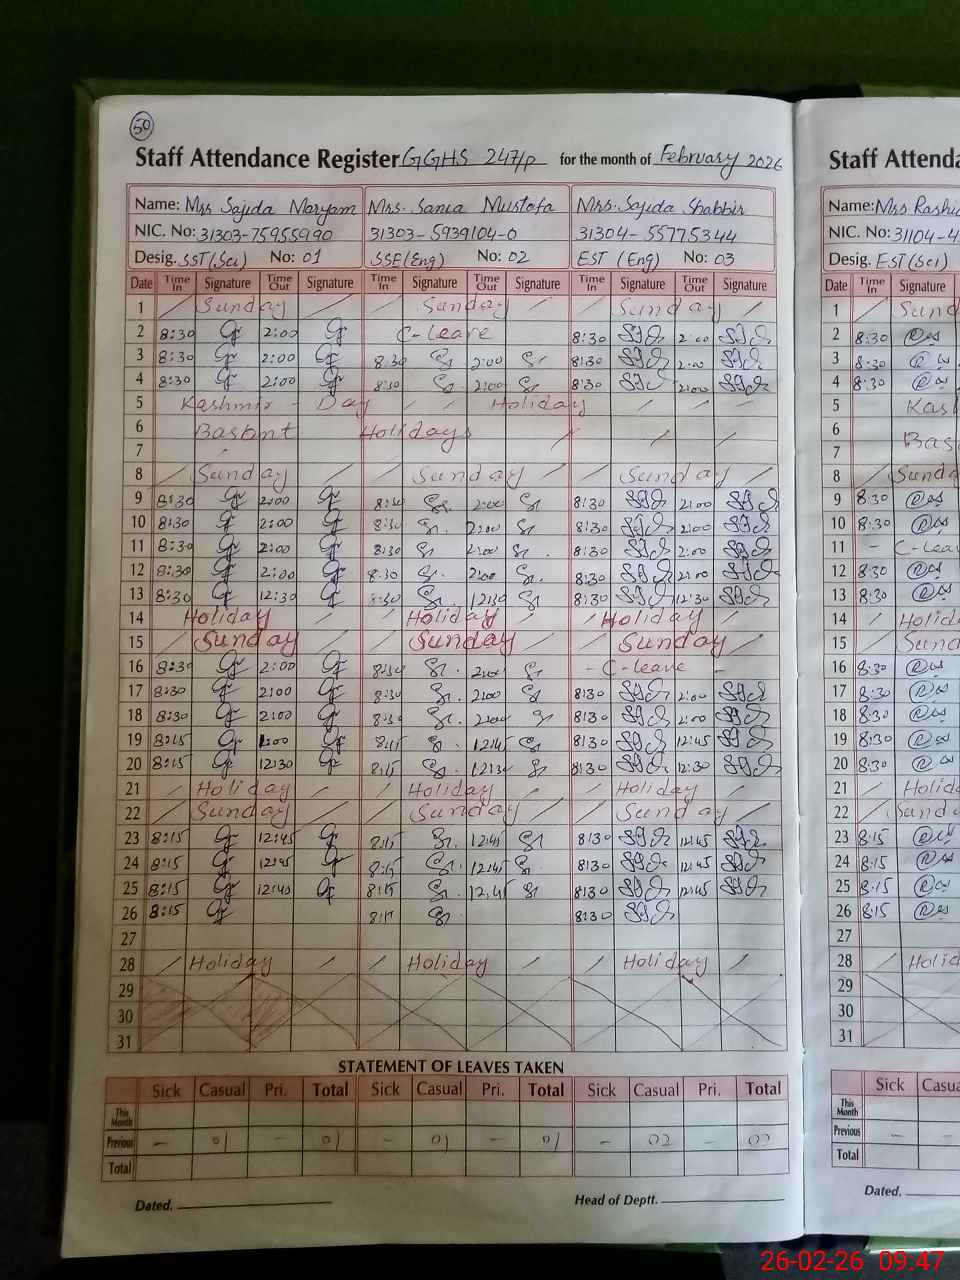 50
Staff Attendance Register GGHS 247/P for the month of February 2026
Name: Mrs Sajida Maryam Mrs. Sania Mustafa Mrs. Sajida Shabbir
NIC. No: 31303-75955990 31303-5939104-0 31304-55775344
Desig. SST(Sci) No: 01 SSE(Eng) No: 02 EST (Eng) No: 03
Date Time In Signature Time Out Signature Time In Signature Time Out Signature Time In Signature Time Out Signature
1 Sunday Sunday Sunday
2 8:30 2:00 C-leave 8:30 2:00
3 8:30 2:00 8:30 2:00 8:30 2:00
4 8:30 2:00 8:30 2:00 8:30 2:00
5 Kashmir - Day Holiday
6 Basant Holidays
7
8 Sunday Sunday Sunday
9 8:30 2:00 8:30 2:00 8:30 2:00
10 8:30 2:00 8:30 2:00 8:30 2:00
11 8:30 2:00 8:30 2:00 8:30 2:00
12 8:30 2:00 8:30 2:00 8:30 2:00
13 8:30 12:30 8:30 12:30 8:30 12:30
14 Holiday Holiday Holiday
15 Sunday Sunday Sunday
16 8:30 2:00 8:30 2:00 - C-leave -
17 8:30 2:00 8:30 2:00 8:30 2:00
18 8:30 2:00 8:30 2:00 8:30 2:00
19 8:15 1:00 8:15 12:45 8:30 12:45
20 8:15 12:30 8:15 12:30 8:30 12:30
21 Holiday Holiday Holiday
22 Sunday Sunday Sunday
23 8:15 12:45 8:15 12:45 8:30 12:45
24 8:15 12:45 8:15 12:45 8:30 12:45
25 8:15 12:45 8:15 12:45 8:30 12:45
26 8:15 8:15 8:30
27
28 Holiday Holiday Holiday
29
30
31
STATEMENT OF LEAVES TAKEN
Sick Casual Pri. Total Sick Casual Pri. Total Sick Casual Pri. Total
This Month
Previous - 01 - 01 - 01 - 01 - 02 - 02
Total
Dated. Head of Deptt.
Staff Attenda
Name: Mrs Rashid
NIC. No: 31104-4
Desig. EST(Sci)
Date Time In Signature
1 Sund
2 8:30
3 8:30
4 8:30
5 Kas
6 Bas
7
8 Sunda
9 8:30
10 8:30
11 - C-leav
12 8:30
13 8:30
14 Holid
15 Sund
16 8:30
17 8:30
18 8:30
19 8:30
20 8:30
21 Holida
22 Sund
23 8:15
24 8:15
25 8:15
26 8:15
27
28 Holid
29
30
31
Sick Casua
This Month
Previous - -
Total
Dated.
26-02-26 09:47